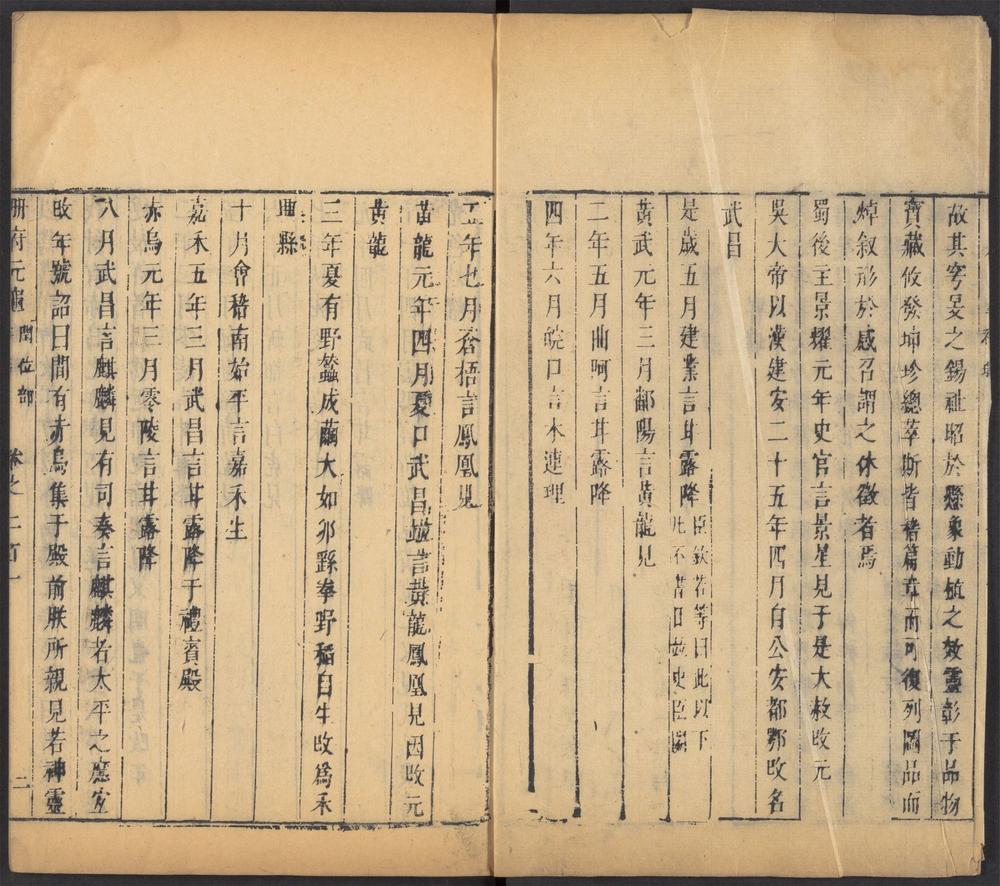 故其穹旻之錫祉昭於懸象動植之效靈彰于品物
寳藏攸發坤珍總萃斯皆耀篇章而可復列圖品而
焯叙形於感召謂之休徵者焉
蜀後主景耀元年史官言景星見于是大赦攺元
吳大帝以漢建安二十五年四月自公安都鄂攺名
武昌
是歲五月建業言甘露降
臣欽若等曰此以下
此不書日並史臣闕
黃武元年三月鄱陽言黃龍見
二年五月曲呵言甘露降
四年六月皖口言木連理
年七月蒼梧言鳳凰見
黃龍元年四月夏口武昌竝言黃龍鳳凰見因攺元
黃龍
三年夏有野蠶成繭大如卵繇拳野稻自生攺爲禾
興縣
十月會稽南始平言嘉禾生
嘉禾五年三月武昌言甘露降于禮賓殿
赤烏元年三月零陵言甘露降
八月武昌言麒麟見有司奏言麒麟者太平之應宜
攺年號詔曰間有赤烏集于殿前朕所親見若神靈
册府元龜 閏位部 卷之二百一 二